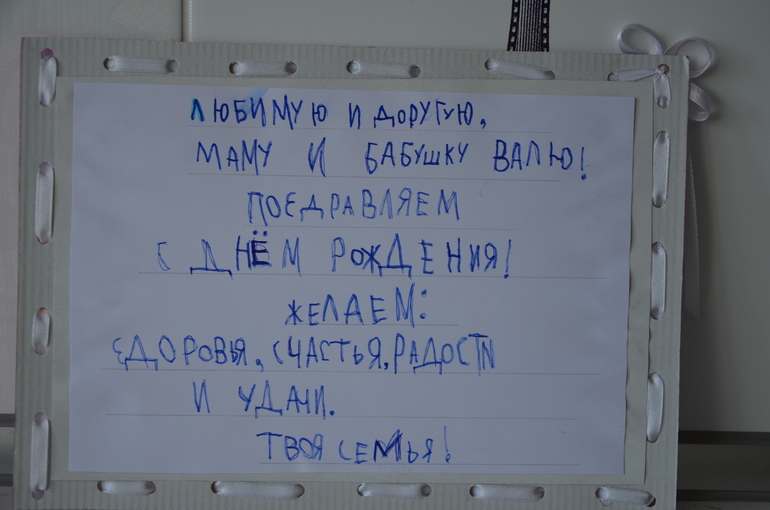 ЛЮБИМУЮ И ДОРУГУЮ,
МАМУ И БАБУШКУ ВАЛЮ!
ПОЄДРАВЛЯЕМ
С ДНЁМ РОЖДЕНИЯ!
ЖЕЛАЕМ:
ЄДОРОВЬЯ, СЧАСТЬЯ, РАДОСТИ
И УДАЧИ.
ТВОЯ СЕМЬЯ!